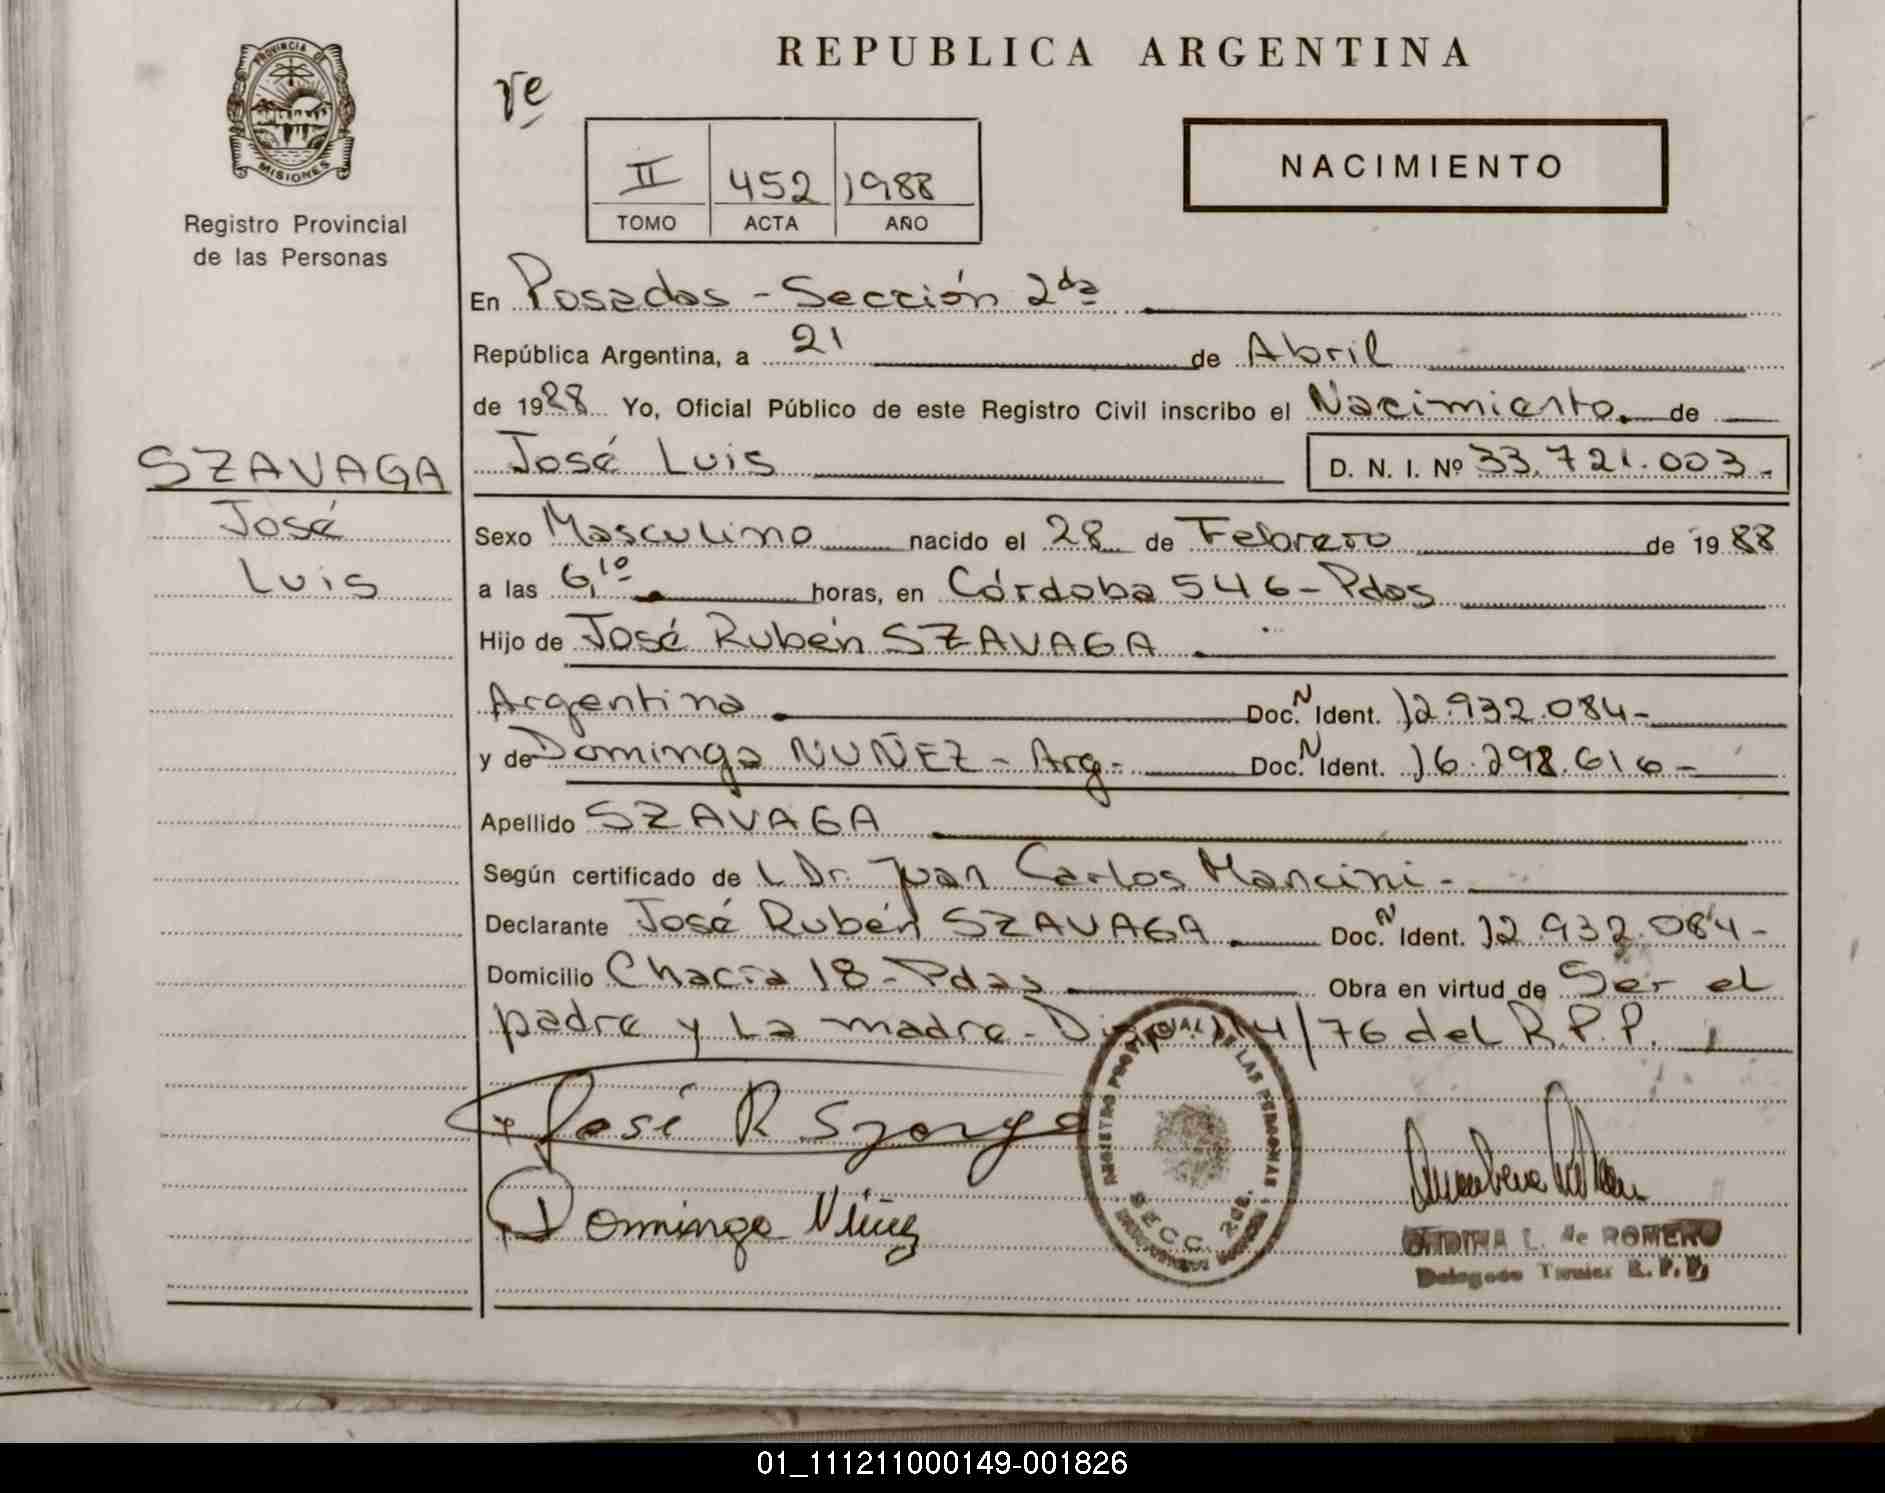 REPUBLICA ARGENTINA
PROVINCIA DE
MISIONES
Registro Provincial
de las Personas
II 452 1988
TOMO ACTA AÑO
NACIMIENTO
En Posadas - Sección 2da
República Argentina, a 21 de Abril
de 1988 Yo, Oficial Público de este Registro Civil inscribo el Nacimiento de
SZAVAGA
José
Luis
José Luis D. N. I. Nº 33.721.003.-
Sexo Masculino nacido el 28 de Febrero de 1988
a las 6,10 horas, en Córdoba 546 - Pdas
Hijo de José Rubén SZAVAGA
Argentina Doc. N Ident. 12.932.084-
y de Dominga NUÑEZ - Arg- Doc. N Ident. 16.298.616-
Apellido SZAVAGA
Según certificado de L Dr. Juan Carlos Mancini-
Declarante José Rubén SZAVAGA Doc. N Ident. 12.932.084-
Domicilio Chacra 18 - Pdas Obra en virtud de Ser el
padre y La madre - Disp. 114/76 del R.P.P.
José R
Dominga
REGISTRO PROVINCIAL DE LAS PERSONAS
SECC. 2da.
L. de ROMERO
R.P.P.
01_111211000149-001826